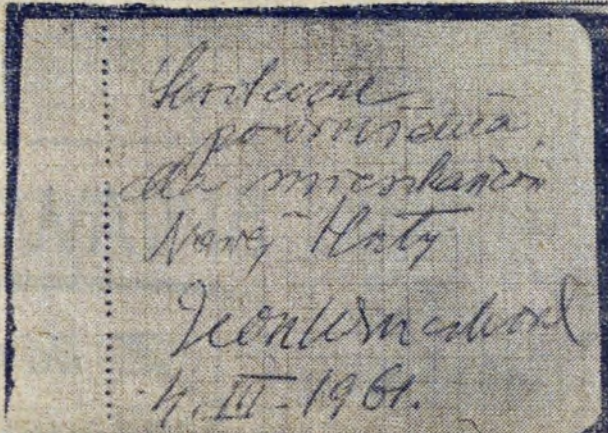 Serdeczne
pozdrowienia
dla mieszkańców
Nowej Huty
4. III - 1961.